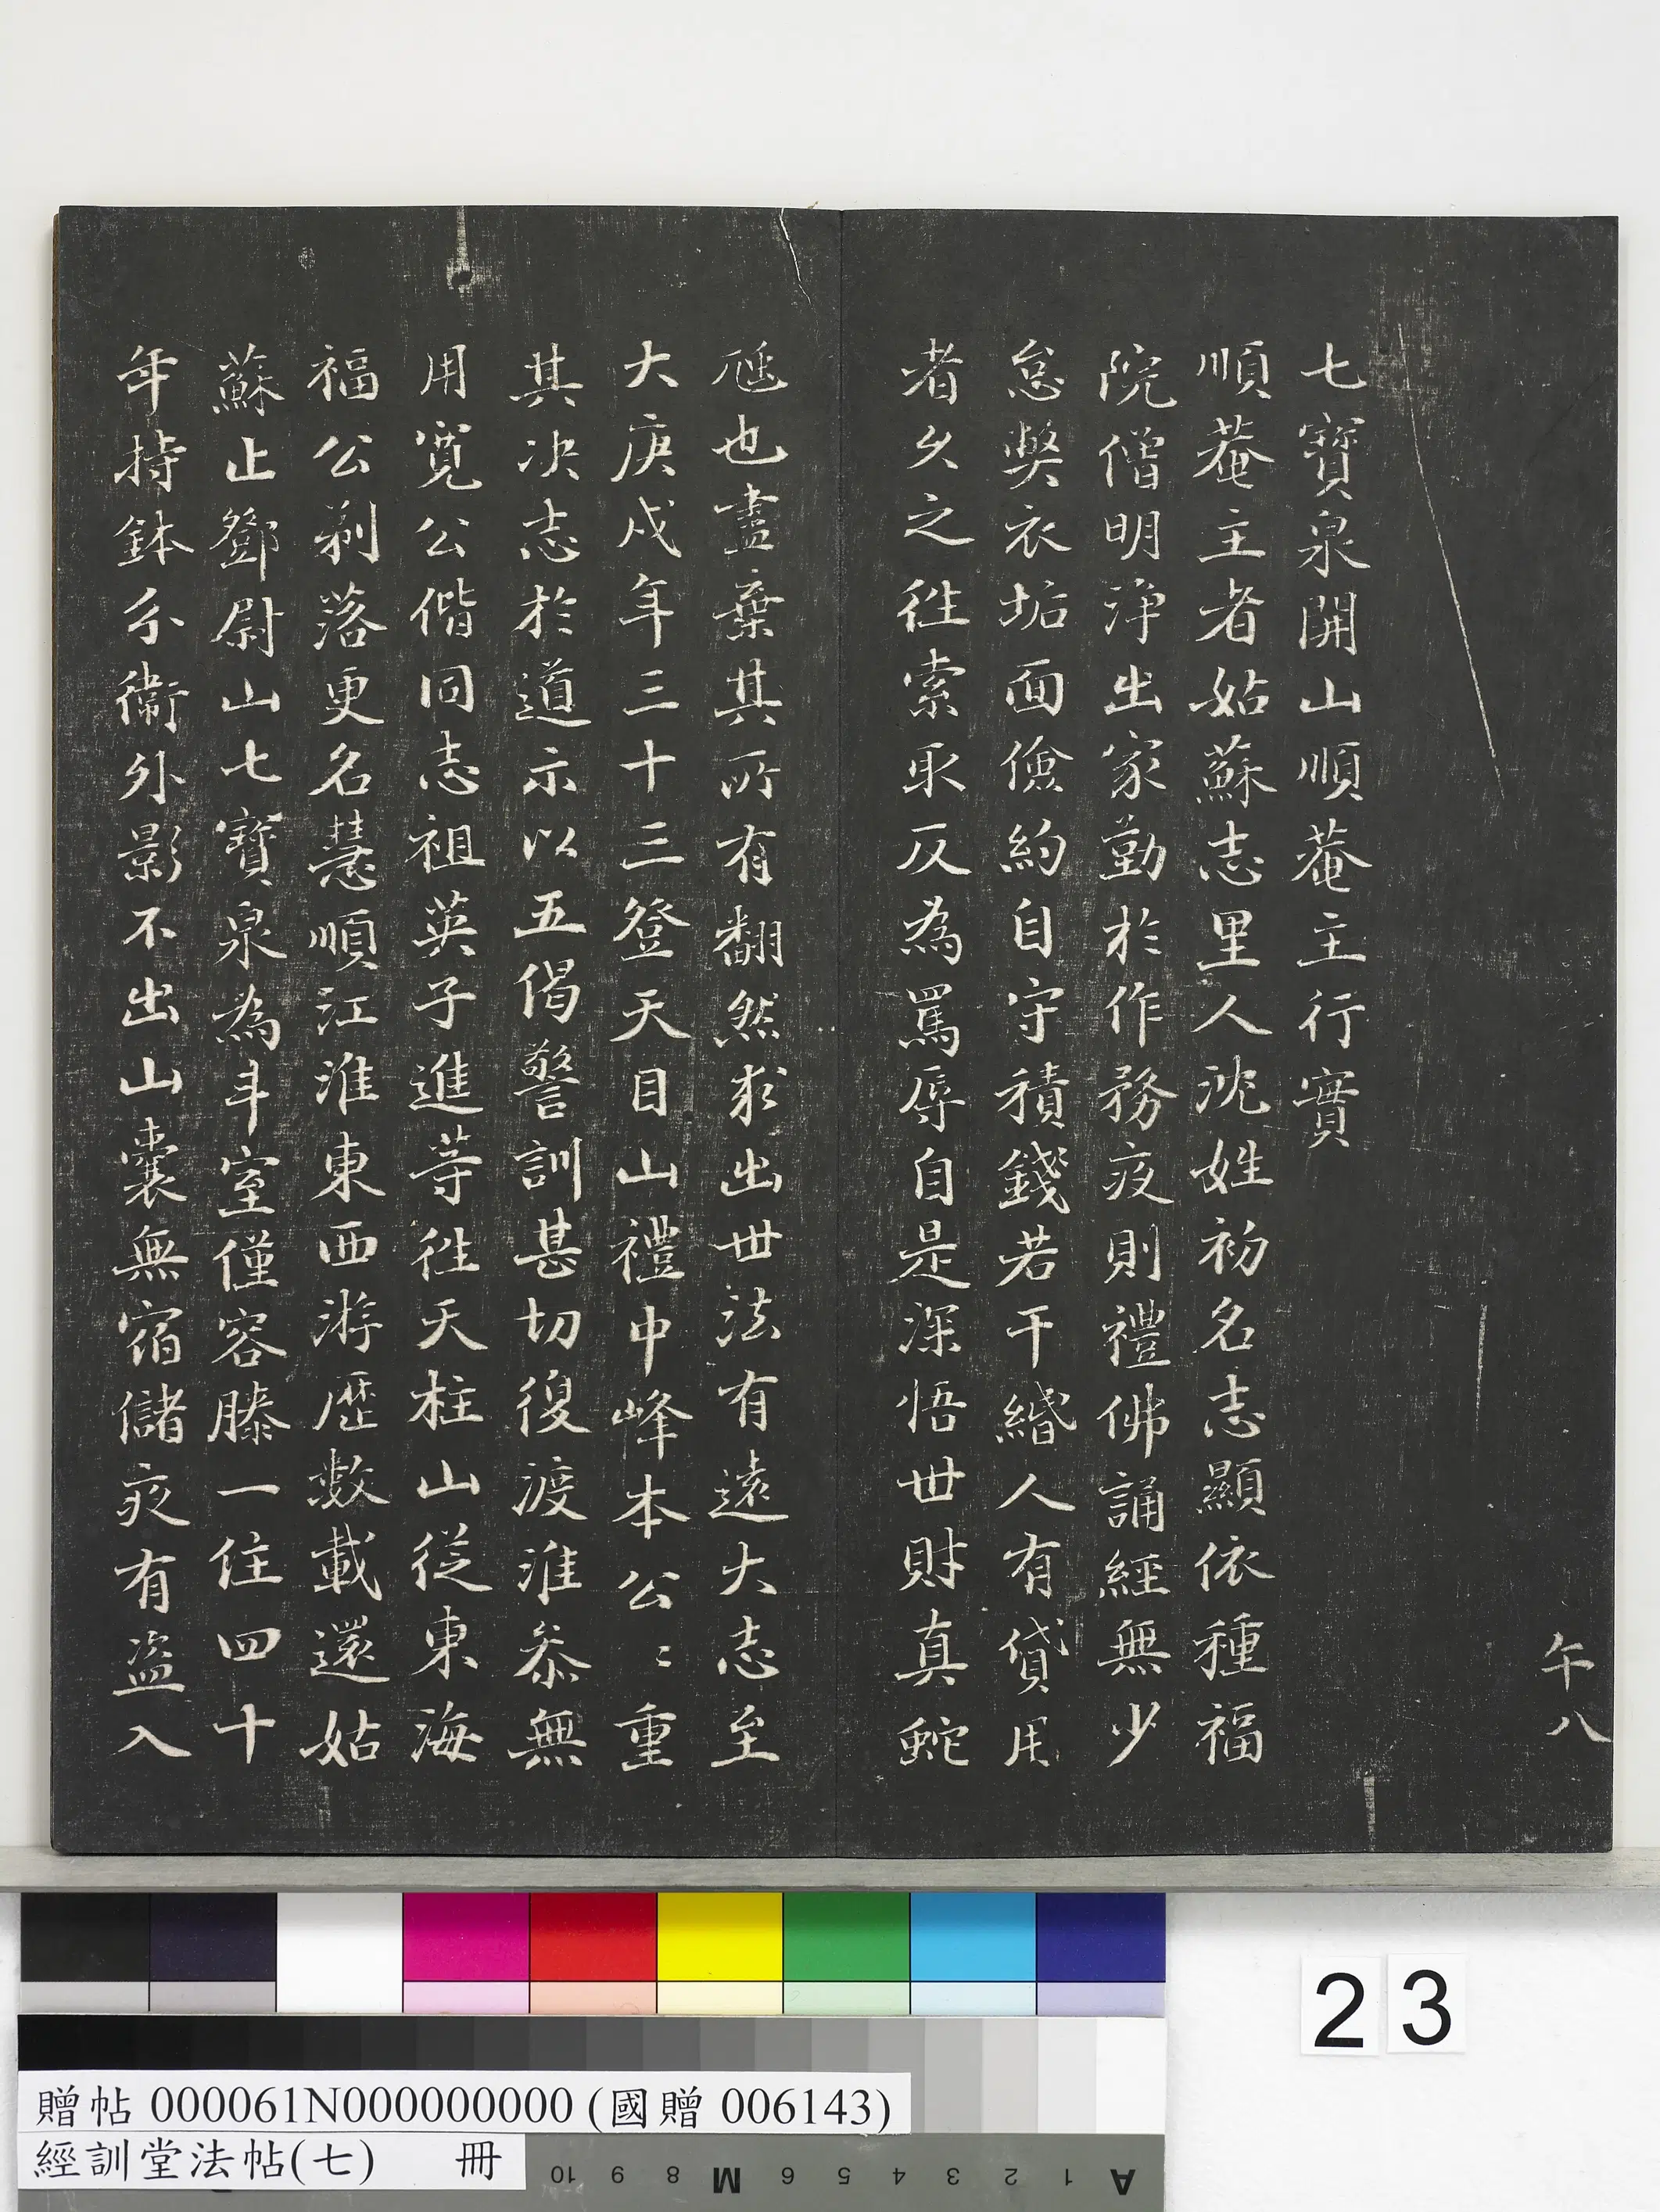 午八
七寶泉開山順菴主行實
順菴主者姑蘇志里人沈姓初名志顯依種福
院僧明淨出家勤於作務夜則禮佛誦經無少
怠弊衣垢面儉約自守積錢若干緡人有貸用
者久之往索取反為罵辱自是深悟世財真蛇
虺也盡棄其所有翻然求出世法有遠大志至
大庚戌年三十三登天目山禮中峰本公〻重
其决志於道示以五偈警訓甚切復渡淮叅無
用寬公偕同志祖英子進等往天柱山從東海
福公剃落更名慧順江淮東西游歷數載還姑
蘇止鄧尉山七寶泉為斗室僅容膝一住四十
年持鉢分衞外影不出山囊無宿儲夜有盜入
23
贈帖 000061N000000000 (國贈 006143)
經訓堂法帖(七) 冊
10 9 8 M 6 5 4 3 2 1 A